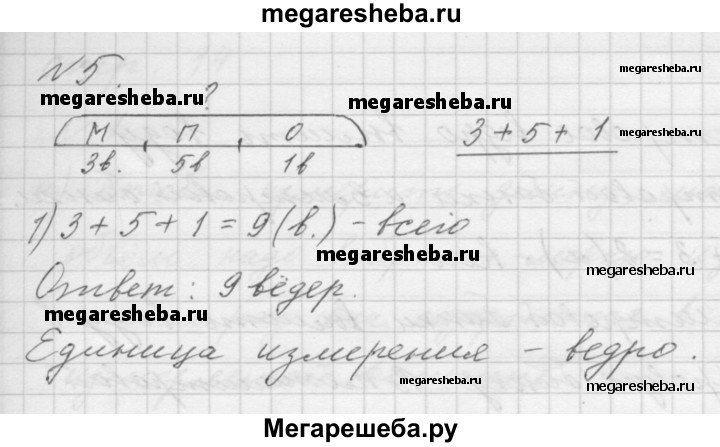 megaresheba.ru
№5.
megaresheba.ru
?
megaresheba.ru
М П О
3в. 5в 1в
3 + 5 + 1
megaresheba.ru
megaresheba.ru
1) 3 + 5 + 1 = 9 (в.) - всего
megaresheba.ru
megaresheba.ru
Ответ: 9 вёдер.
megaresheba.ru
Единица измерения - ведро.
megaresheba.ru
megaresheba.ru
Мегарешеба.ру